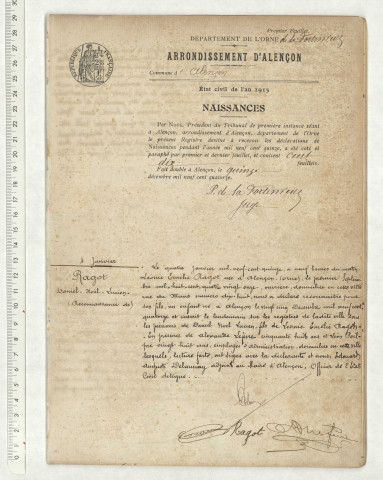 Premier feuillet
DÉPARTEMENT DE L'ORNE
ARRONDISSEMENT D'ALENÇON
Commune d'Alençon
Etat civil de l'an 1915
NAISSANCES
Par Nous, Président du Tribunal de première instance séant
à Alençon, arrondissement d'Alençon, département de l'Orne
le présent Registre destiné à recevoir les déclarations de
Naissances pendant l'année mil neuf cent quinze, a été coté et
paraphé par premier et dernier feuillet, et contient Cent
dix feuillets.
Fait double à Alençon, le quinze
décembre mil neuf cent quatorze.
P. de la
Juge
4 Janvier
Ragot
Daniel Noël Lucien
(Reconnaissance de)
Le quatre janvier mil neuf cent quinze, à neuf heures du matin
Léonie Emilie Ragot née à Alençon (Orne), le premier
mil huit cent quatre vingt onze, ouvrière, domiciliée en cette ville
rue du Mans numéro dix huit, nous a déclaré reconnaître pour
son fils, un enfant né à Alençon le Décembre mil neuf cent
quatorze et inscrit le lendemain sur les registres de ladite ville sous
les prénoms de Daniel Noël Lucien, fils de Léonie Emilie Ragot
En présence de Alexandre cinquante huit ans et Léon
vingt huit ans, employés d'administration, domiciliés en cette ville
lesquels, lecture faite, ont signé avec la déclarante et nous, Edouard
Auguste Delaunay, adjoint au Maire d'Alençon, Officier de l'Etat
Civil délégué.
Ragot